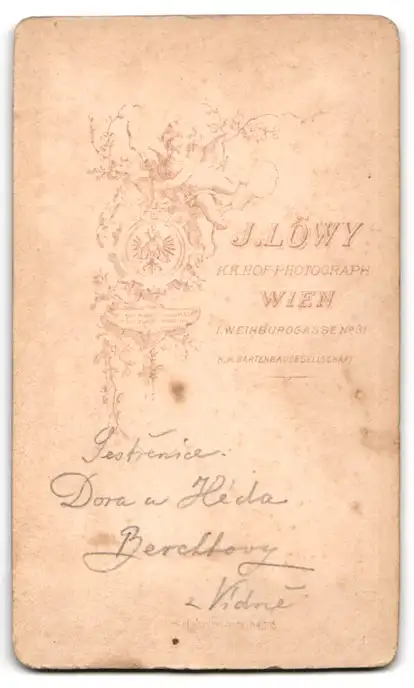 J. LÖWY
K.K. HOF-PHOTOGRAPH
WIEN
I. WEIHBURGGASSE No 31
K.K. GARTENBAUGESELLSCHAFT
Sestřenice.
Dora a Héda
Berchtovy
z Vídně